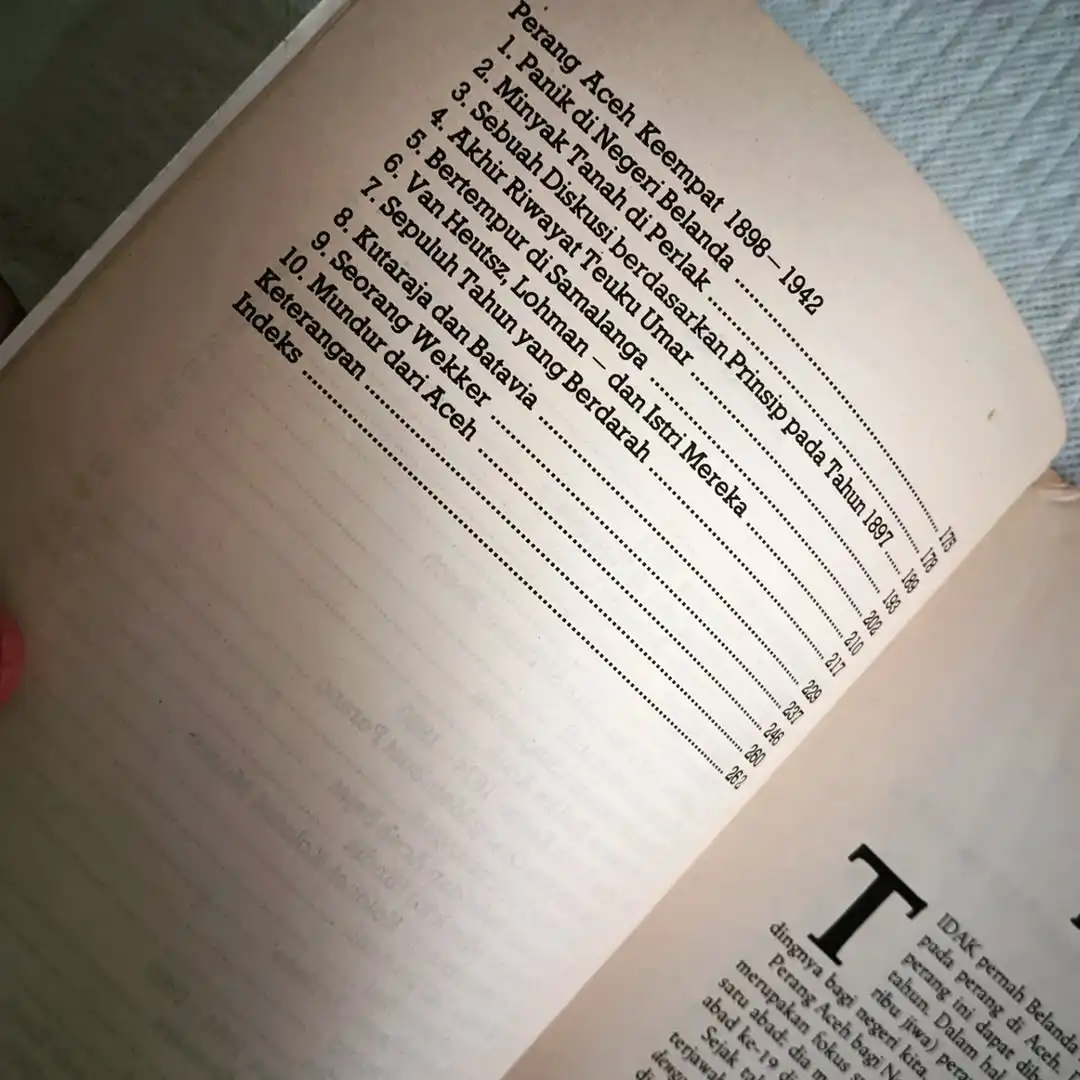 Perang Aceh Keempat 1898 – 1942
1. Panik di Negeri Belanda ........ 175
2. Minyak Tanah di Perlak ........ 178
3. Sebuah Diskusi berdasarkan Prinsip pada Tahun 1897 ..... 189
4. Akhir Riwayat Teuku Umar ........ 193
5. Bertempur di Samalanga ........ 202
6. Van Heutsz, Lohman — dan Istri Mereka ........ 210
7. Sepuluh Tahun yang Berdarah ........ 217
8. Kutaraja dan Batavia ........ 229
9. Seorang Wekker ........ 237
10. Mundur dari Aceh ........ 246
Keterangan ........ 260
Indeks ........ 262
TIDAK pernah Belanda
pada perang di Aceh.
perang ini dapat
tahun. Dalam
ribu jiwa)
dingnya bagi negeri kita
Perang Aceh bagi
merupakan fokus
satu abad: dia
abad ke-19
Sejak